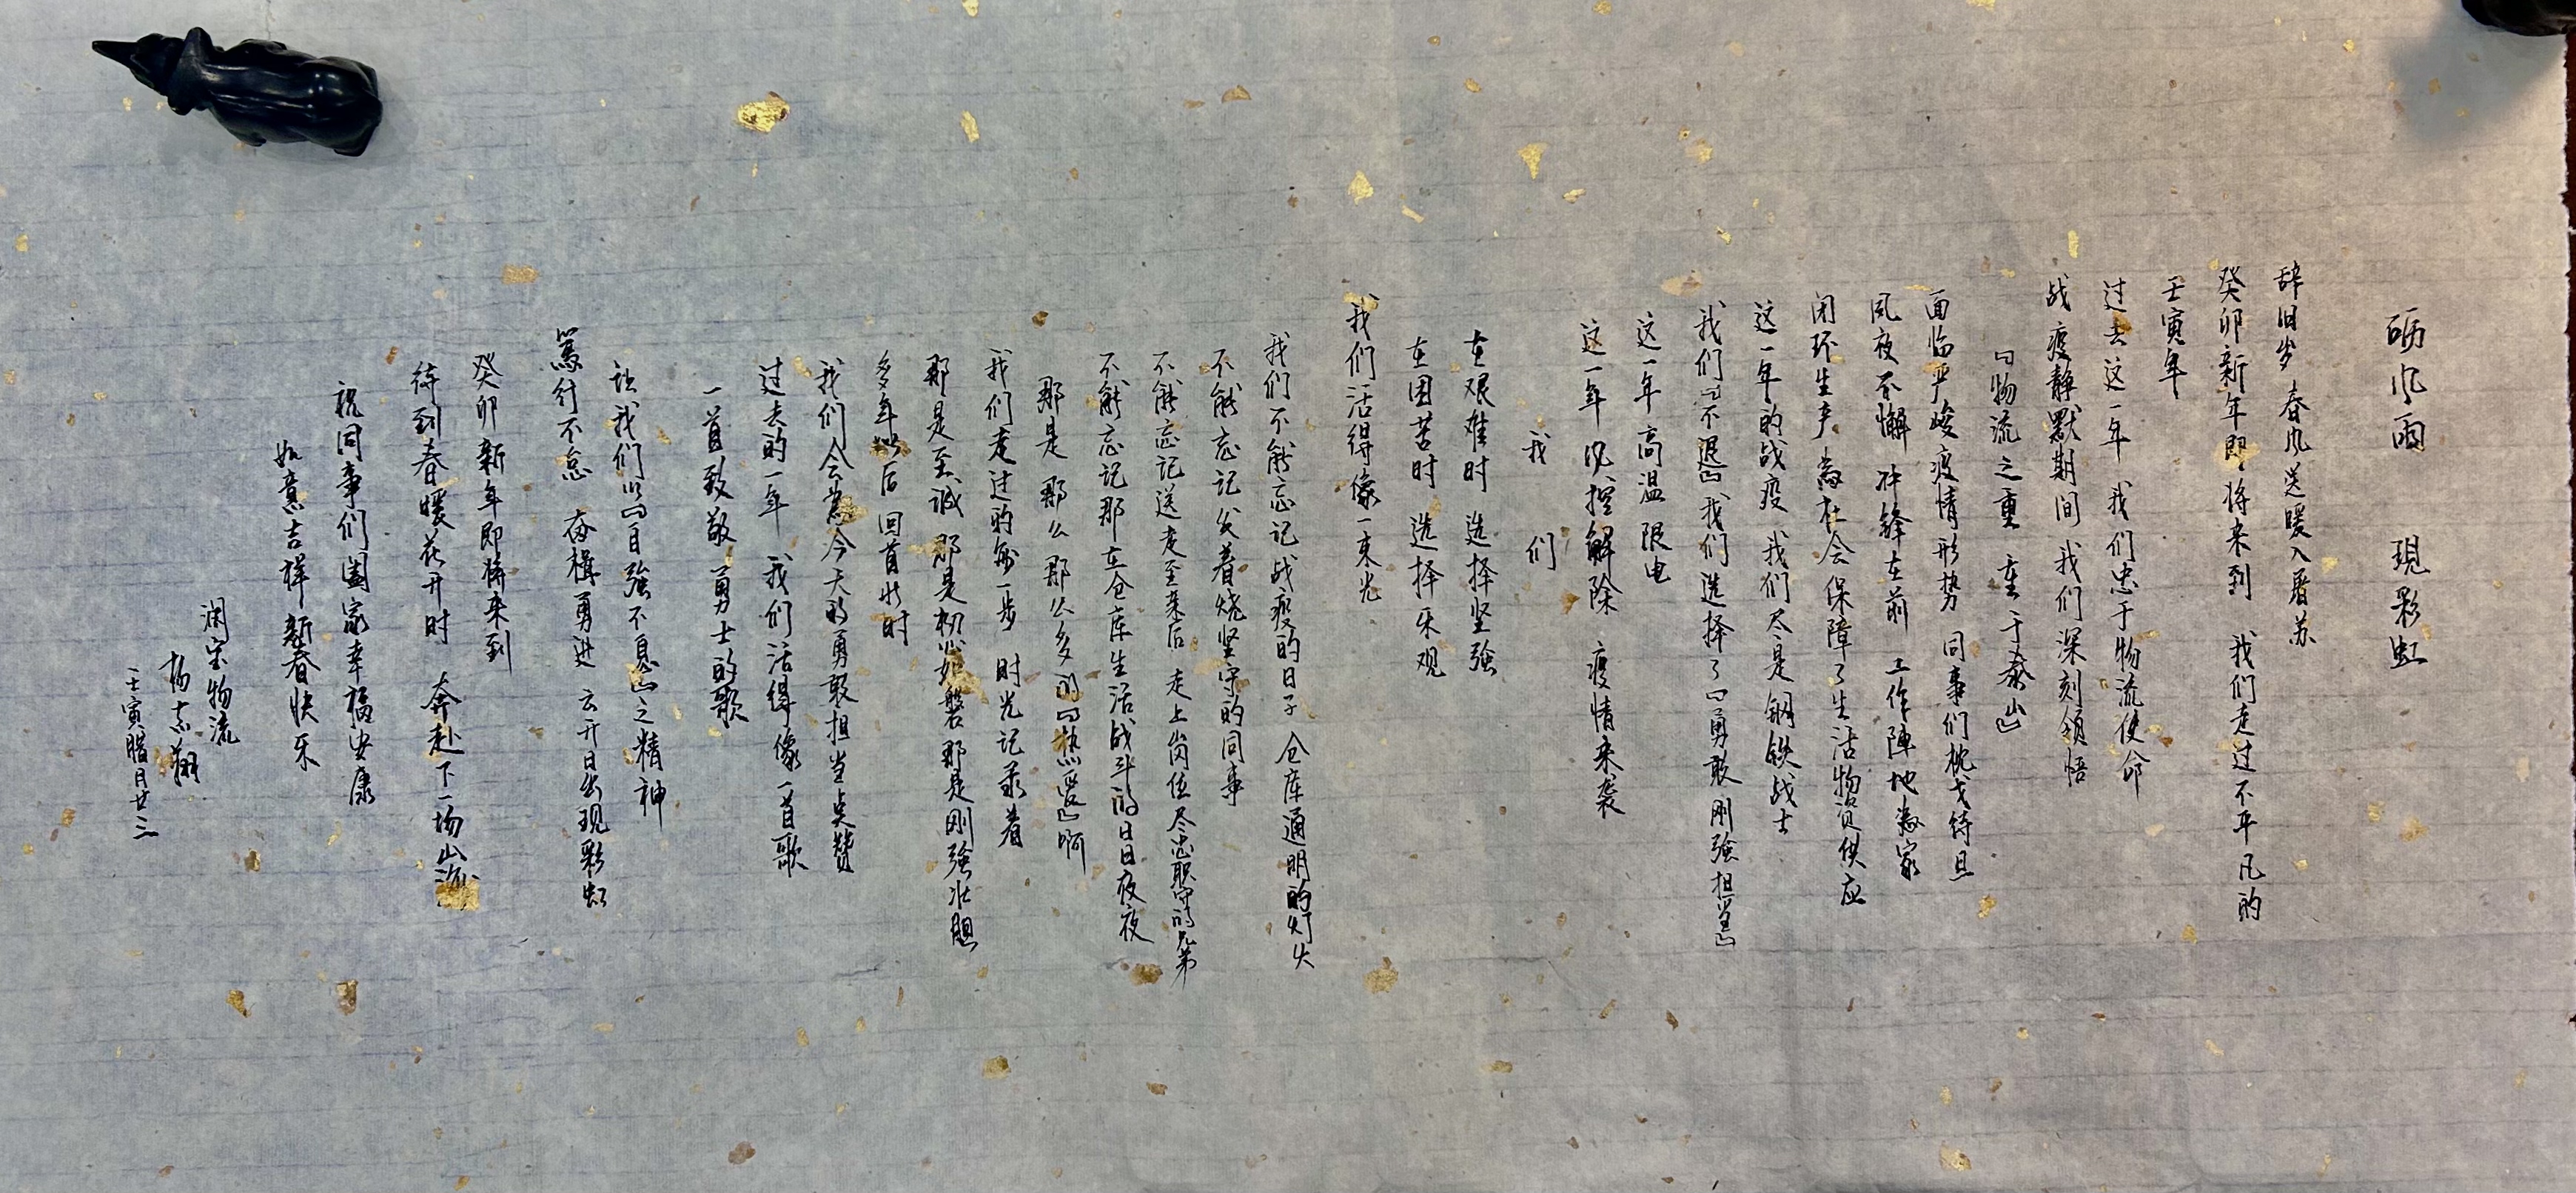 砺风雨 现彩虹
辞旧岁 春风送暖入屠苏
癸卯新年即将来到 我们走过不平凡的
壬寅年
过去这一年 我们忠于物流使命
战疫静默期间 我们深刻领悟
『物流之重 重于泰山』
面临严峻疫情形势 同事们枕戈待旦
夙夜不懈 冲锋在前 工作阵地为家
闭环生产 为社会保障了生活物资供应
这一年的战疫 我们尽是钢铁战士
我们『不退』我们选择了『勇敢 刚强 担当』
这一年 高温 限电
这一年 风控解除 疫情来袭
我们
在艰难时 选择坚强
在困苦时 选择乐观
我们活得像一束光
我们不能忘记战疫的日子 仓库通明的灯火
不能忘记发着烧坚守的同事
不能忘记送走至亲后 走上岗位尽忠职守的兄弟
不能忘记那在仓库生活战斗的日日夜夜
那是 那么 那么多的『热爱』啊
我们走过的每一步 时光记录着
那是至诚 那是初心如磐 那是刚强壮胆
多年以后 回首此时
我们会为今天的勇敢担当点赞
过去的一年 我们活得像一首歌
一首致敬勇士的歌
让我们以『自强不息』之精神
笃行不怠 奋楫勇进 云开日出现彩虹
癸卯新年即将来到
待到春暖花开时 奔赴下一场山海
祝同事们阖家幸福安康
如意吉祥 新春快乐
润宝物流
杨志翔
壬寅腊月廿三